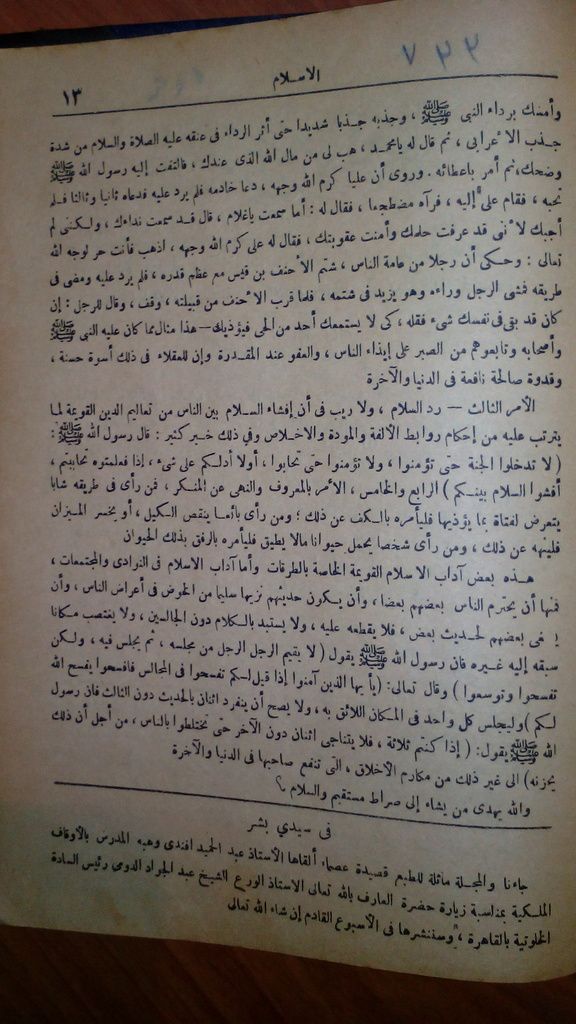 ٧٣٣
الاسلام
١٣
وأمسك برداء النبي ﷺ ، وجذبه جذبا شديدا حتى أثر الرداء فى عنقه عليه الصلاة والسلام من شدة
جذب الأعرابى ، ثم قال له يامحمد ، هب لى من مال الله الذى عندك ، فالتفت إليه رسول الله ﷺ
وضحك، ثم أمر باعطائه . وروى أن عليا كرم الله وجهه ، دعا خادمه فلم يرد عليه فدعاه ثانيا وثالثا فلم
يجبه ، فقام على إليه ، فرآه مضطجعا ، فقال له : أما سمعت ياغلام ، قال قد سمعت نداءك ، ولكننى لم
أجبك لأنى قد عرفت حلمك وأمنت عقوبتك ، فقال له على كرم الله وجهه ، اذهب فأنت حر لوجه الله
تعالى : وحكى أن رجلا من عامة الناس ، شتم الأحنف بن قيس مع عظم قدره ، فلم يرد عليه ومضى فى
طريقه فمشى الرجل وراءه وهو يزيد فى شتمه ، فلما قرب الأحنف من قبيلته ، وقف ، وقال للرجل : إن
كان قد بقى فى نفسك شىء فقله ، كى لا يستمعك أحد من الحى فيؤذيك — هذا مثال مما كان عليه النبى ﷺ
وأصحابه وتابعوهم من الصبر على إيذاء الناس ، والعفو عند المقدرة وإن للعقلاء فى ذلك أسوة حسنة ،
وقدوة صالحة نافعة فى الدنيا والآخرة
الأمر الثالث — رد السلام ، ولا ريب فى أن إفشاء السلام بين الناس من تعاليم الدين القويمة لما
يترتب عليه من إحكام روابط الألفة والمودة والاخلاص وفي ذلك خبر كثير : قال رسول الله ﷺ :
( لا تدخلوا الجنة حتى تؤمنوا ، ولا تؤمنوا حتى تحابوا ، أولا أدلكم على شىء ، إذا فعلمتوه تحاببتم ،
أفشوا السلام بينكم ) الرابع والخامس ، الأمر بالمعروف والنهى عن المنكر ، فمن رأى فى طريقه شابا
يتعرض لفتاة بما يؤذيها فليأمره بالكف عن ذلك ؛ ومن رأى بائعا ينقص الكيل ، أو يخسر الميزان
فلينهه عن ذلك ، ومن رأى شخصا يحمل حيوانا مالا يطيق فليأمره بالرفق بذلك الحيوان
هذه بعض آداب الاسلام القويمة الخاصة بالطرقات وأما آداب الاسلام فى النوادى والمجتمعات ،
فمنها أن يحترم الناس بعضهم بعضا ، وأن يكون حديثهم نزيها سليما من الخوض فى أعراض الناس ، وأن
بعضهم لحديث بعض ، فلا يقطعه عليه ، ولا يستبد بالكلام دون الجالسين ، ولا يغتصب مكانا
سبقه إليه غيره فان رسول الله ﷺ يقول ( لا يقيم الرجل الرجل من مجلسه ، ثم يجلس فيه ، ولكن
تفسحوا وتوسعوا ) وقال تعالى: (يأيها الذين آمنوا إذا قيل لكم تفسحوا فى المجالس فافسحوا يفسح الله
لكم ) وليجلس كل واحد فى المكان اللائق به ، ولا يصح أن ينفرد اثنان بالحديث دون الثالث فان رسول
الله ﷺ يقول: ( إذا كنتم ثلاثة ، فلا يتناجى اثنان دون الآخر حتى تختلطوا بالناس ، من أجل أن ذلك
يحزنه) الى غير ذلك من مكارم الأخلاق ، التى تنفع صاحبها فى الدنيا والآخرة
والله يهدى من يشاء إلى صراط مستقيم والسلام
فى سيدي بشر
جاءنا والمجلة ماثلة للطبع قصيدة عصماء ألقاها الأستاذ عبد الحميد افندى وهبه المدرس بالأوقاف
الملكية بمناسبة زيارة حضرة العارف بالله تعالى الاستاذ الورع الشيخ عبد الجواد الدومى رئيس السادة
الخلوتية بالقاهرة ، وسننشرها فى الأسبوع القادم إن شاء الله تعالى